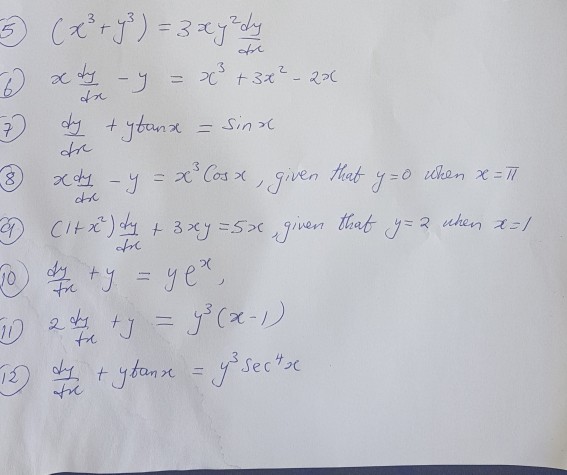 5 (x³ + y³) = 3xy² dy/dx
6 x dy/dx - y = x³ + 3x² - 2x
7 dy/dx + ytanx = sinx
8 x dy/dx - y = x³ Cosx, given that y=0 when x=π
9 (1+x²) dy/dx + 3xy = 5x, given that y=2 when x=1
10 dy/dx + y = y eˣ,
11 2 dy/dx + y = y³(x-1)
12 dy/dx + ytanx = y³ sec⁴x